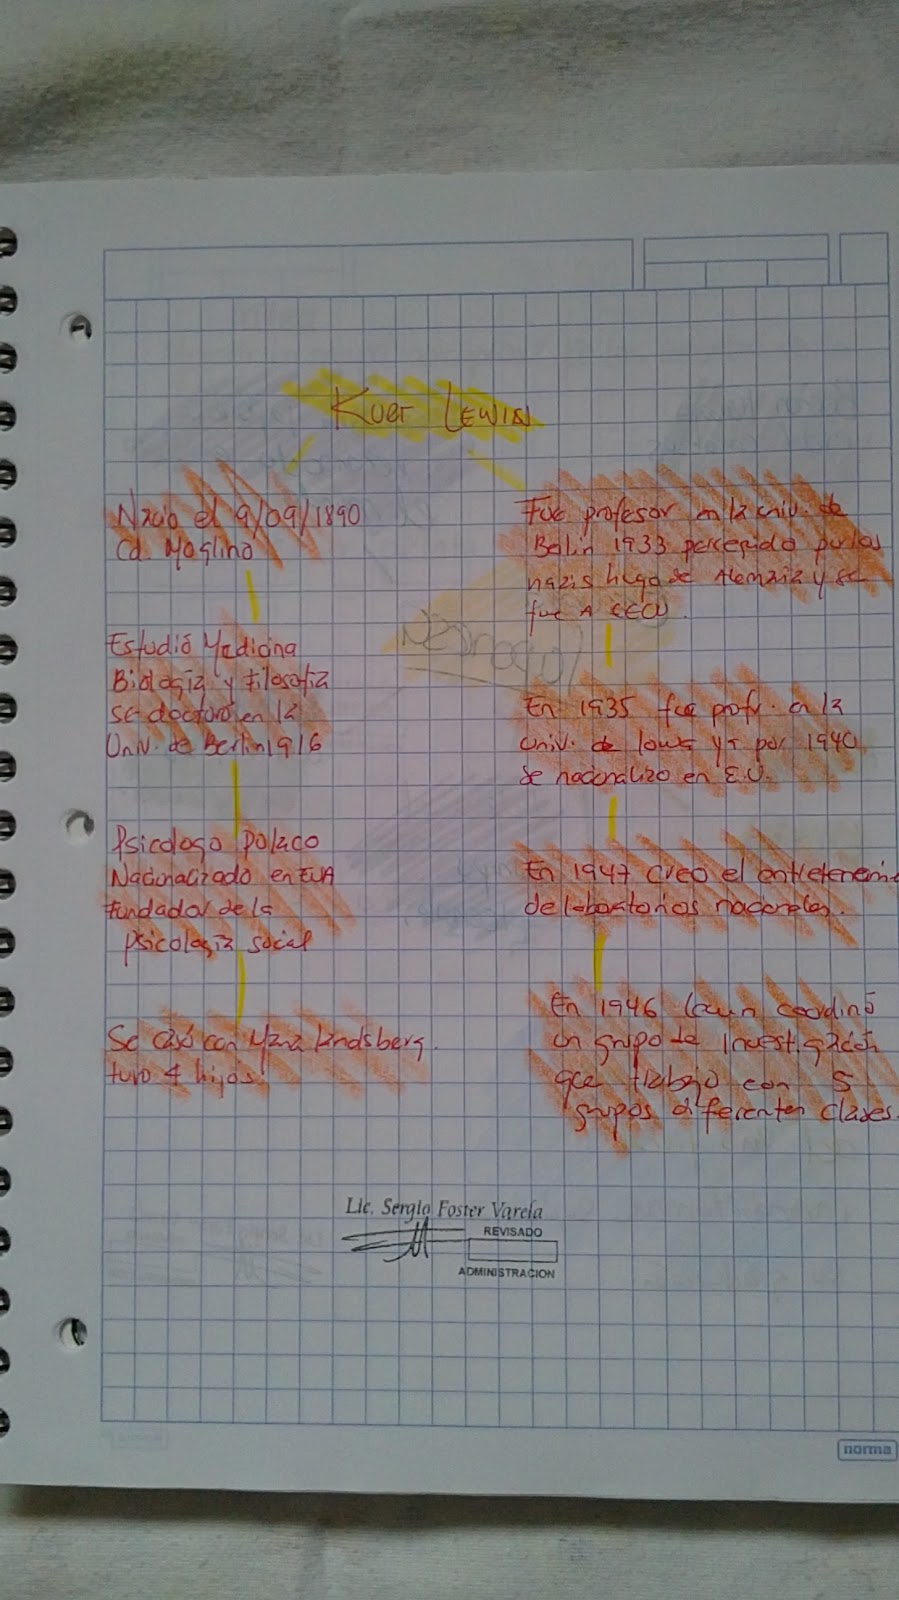 Kurt Lewin
Nacio el 9/09/1890
Cd. Moglino
Estudió Medicina
Biología y Filosofia
se doctoro en la
Univ. de Berlin 1916
Psicologo Polaco
Nacionalizado en EUA
Fundador de la
Psicología social
Se casó con Maria Landsberg.
tuvo 4 hijos.
Fue profesor en la univ. de
Berlin 1933 por los
nazis de Alemania y se
fue A EEUU.
En 1935 fue profr. en la
Univ. de Iowa y por 1940
se nacionalizo en E.U.
En 1947 creo el
de laboratorios nacionales.
En 1946 Lewin coordinó
un grupo de Investigación
que trabajo con 5
grupos diferentes clases.
Lic. Sergio Foster Varela
REVISADO
ADMINISTRACION
norma